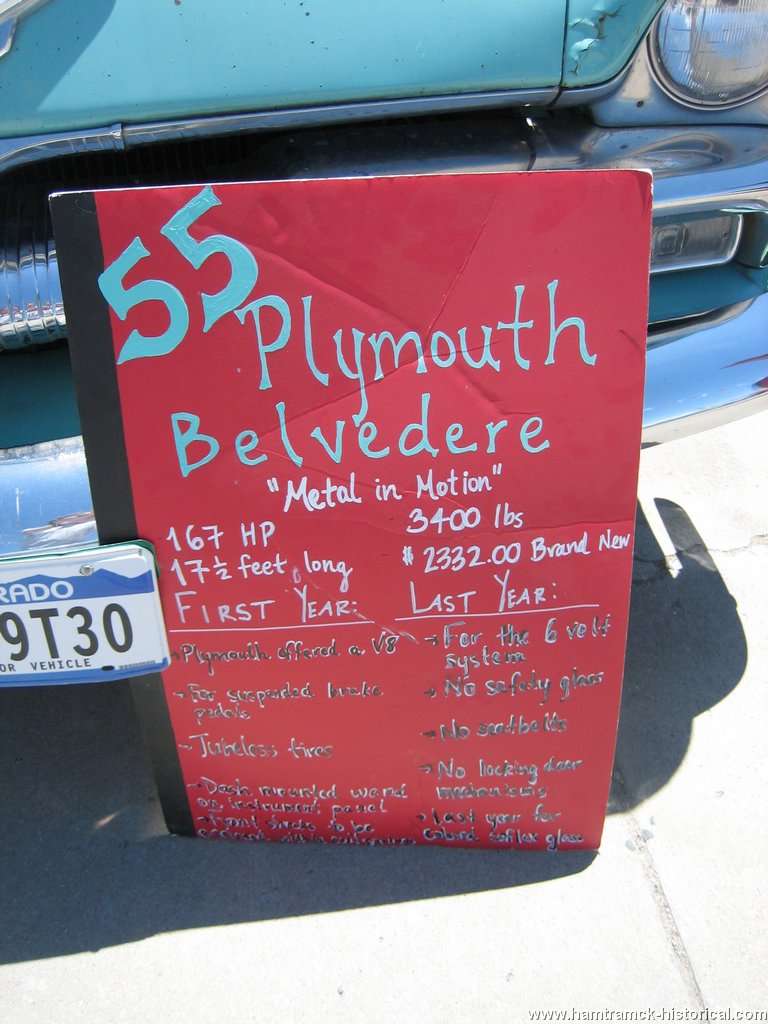 55 Plymouth
Belvedere
"Metal in Motion"
167 HP
17 ½ feet long
3400 lbs
$2332.00 Brand New
FIRST YEAR:
→ Plymouth offered a V8
→ For suspended brake
pedals
→ Tubeless tires
→ Dash mounted
on instrument panel
→ Front shocks to be
LAST YEAR:
→ For the 6 volt
system
→ No safety glass
→ No seatbelts
→ No locking door
mechanisms
→ Last year for
glass
RADO
9T30
OR VEHICLE
www.hamtramck-historical.com